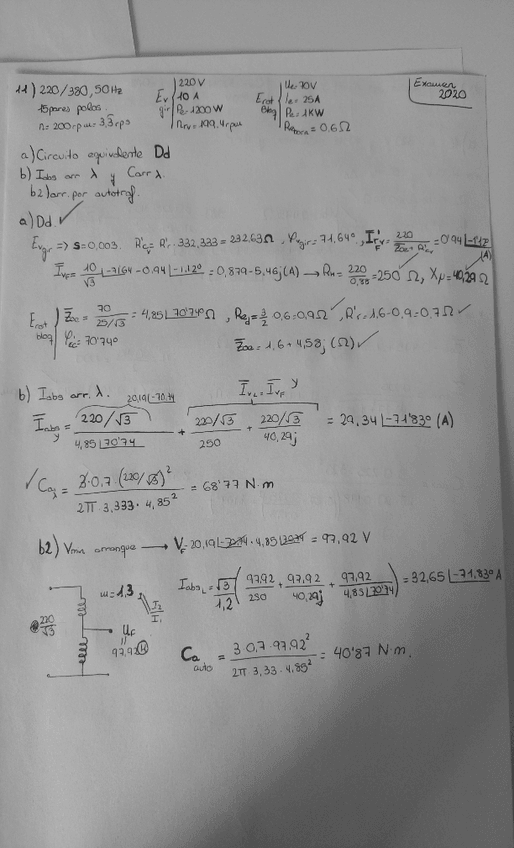 11) 220/380, 50Hz
15 pares polos.
n = 200 rpm = 3,3 rps
220 V
10 A
Po = 1200 W
nrv = 199,4 rpm
Ucc 70V
Ie = 25A
Pc = 1KW
= 0.6 Ω
Examen
2020
a) Circuito equivalente Dd
b) Iabs arr λ y Carr λ.
b2) arr. por autotraf.
a) Dd ✓
=> s = 0,003. R'cv = R'r · 332,333 = 232,63Ω, φvgir = 71,64º, I'rvF = 220 = 0'94
(A)
IvF = 10/√3 |-71'64 - 0.94 |-1,12º = 0,879 - 5,46j (A) → Rn = 220/0,88 = 250 Ω, Xμ = 40,29 Ω
Zcc = 70/(25/√3) = 4,85 |70'74º Ω, Red = 3/2 0,6 = 0,9Ω ✓, R'r = 1,6 - 0,9 = 0,7Ω ✓
φcc = 70'74º
Zcc = 1,6 + 4,58j (Ω) ✓
b) Iabs arr. λ. 20,19 |-70.74 IvL = IvF y
Iabs y = (220/√3)/(4,85 |70'74) + (220/√3)/250 + (220/√3)/(40,29j) = 29,34 |-71'83º (A)
✓ Caλ = (3·0,7·(220/√3)²)/(2π · 3,333 · 4,85²) = 68'77 N·m
b2) Vmin arranque → VF = 20,19 |-70.74 · 4,85 |70.74 = 97,92 V
m = 1,3
I2/I1
220/√3
UF
"
97,92
IabsL = √3/1,2 (97.92/250 + 97,92/40,29j + 97,92/(4,85 |70'74)) = 32,65 |-71,83º A
Ca auto = (3·0,7·97,92²)/(2π·3,33·4,85²) = 40'87 N·m.